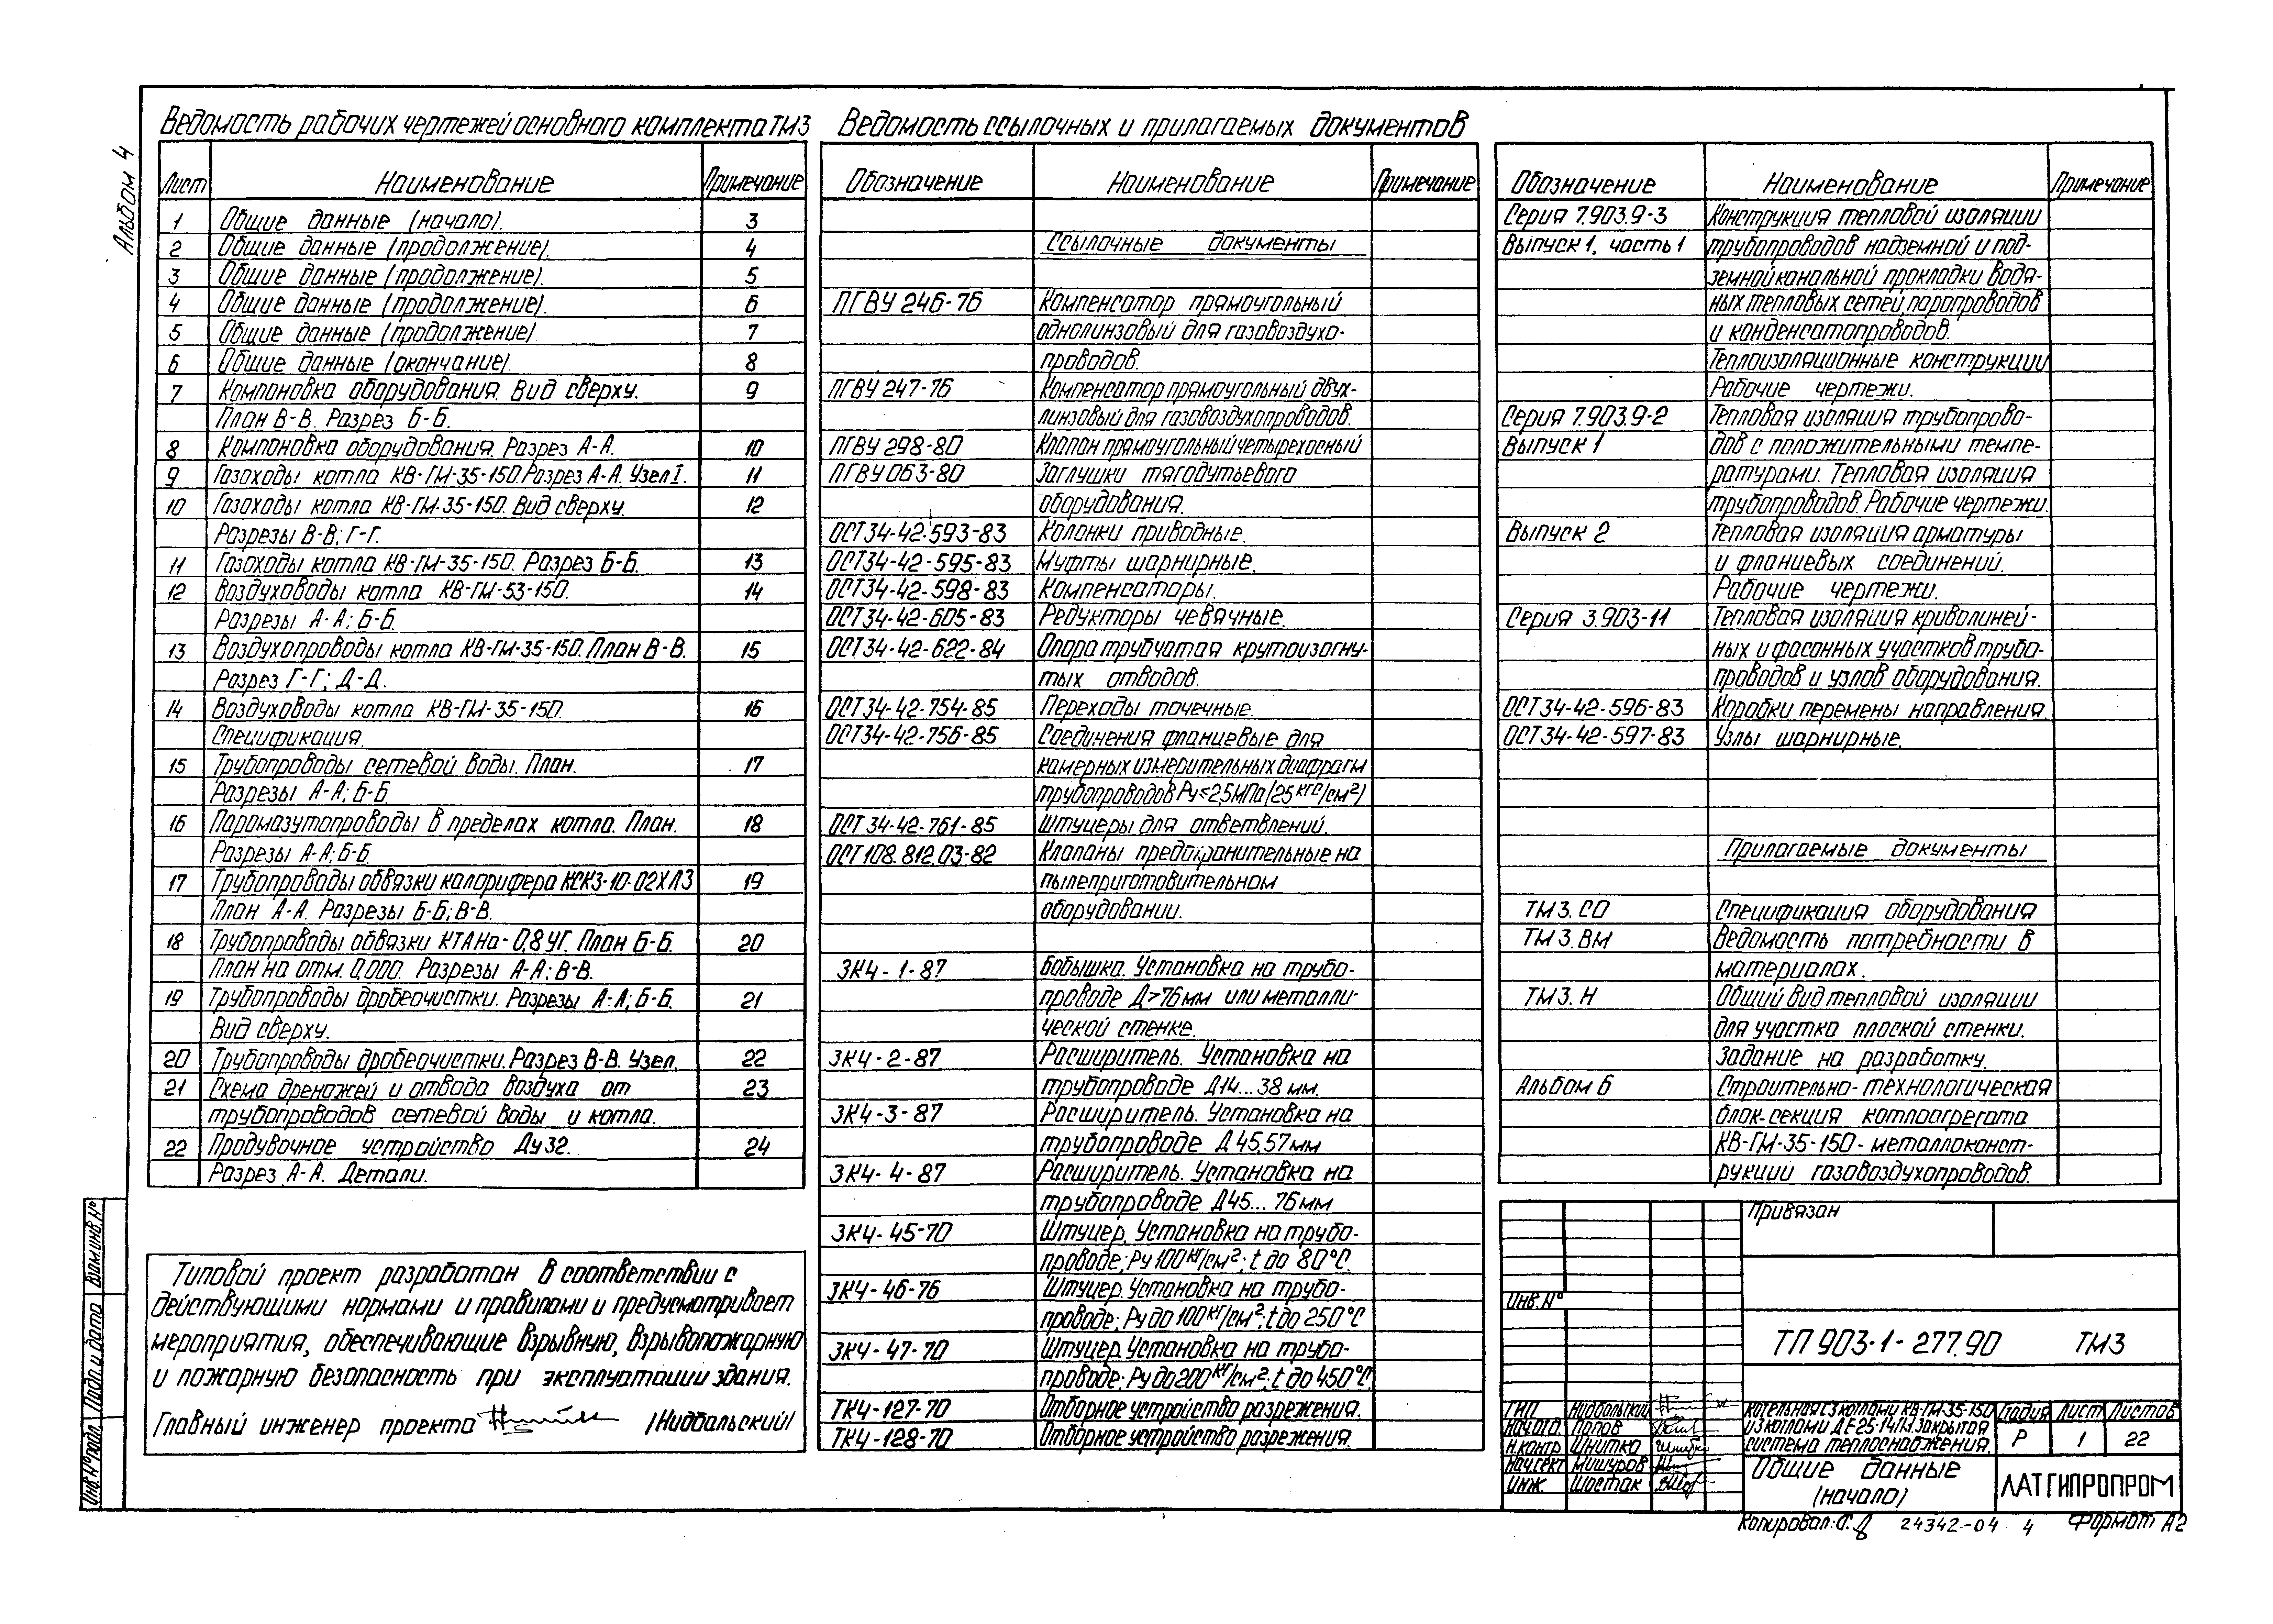 Альбом 4
Ведомость рабочих чертежей основного комплекта ТМ3
Лист Наименование Примечание
1 Общие данные (начало). 3
2 Общие данные (продолжение). 4
3 Общие данные (продолжение). 5
4 Общие данные (продолжение). 6
5 Общие данные (продолжение). 7
6 Общие данные (окончание). 8
7 Компоновка оборудования. Вид сверху. 9
План В-В. Разрез Б-Б.
8 Компоновка оборудования. Разрез А-А. 10
9 Газоходы котла КВ-ГМ-35-150. Разрез А-А. Узел I. 11
10 Газоходы котла КВ-ГМ-35-150. Вид сверху. 12
Разрезы В-В; Г-Г.
11 Газоходы котла КВ-ГМ-35-150. Разрез Б-Б. 13
12 Воздуховоды котла КВ-ГМ-53-150. 14
Разрезы А-А; Б-Б.
13 Воздухопроводы котла КВ-ГМ-35-150. План В-В. 15
Разрез Г-Г; Д-Д.
14 Воздуховоды котла КВ-ГМ-35-150. 16
Спецификация.
15 Трубопроводы сетевой воды. План. 17
Разрезы А-А; Б-Б.
16 Паромазутопроводы в пределах котла. План. 18
Разрезы А-А; Б-Б.
17 Трубопроводы обвязки калорифера КСК3-10-02ХЛ3 19
План А-А. Разрезы Б-Б; В-В.
18 Трубопроводы обвязки КТАНа-0,8 УГ. План Б-Б. 20
План на отм. 0,000. Разрезы А-А; В-В.
19 Трубопроводы дробеочистки. Разрезы А-А; Б-Б. 21
Вид сверху.
20 Трубопроводы дробеочистки. Разрез В-В. Узел. 22
21 Схема дренажей и отвода воздуха от 23
трубопроводов сетевой воды и котла.
22 Продувочное устройство Ду32. 24
Разрез А-А. Детали.
Типовой проект разработан в соответствии с
действующими нормами и правилами и предусматривает
мероприятия, обеспечивающие взрывную, взрывопожарную
и пожарную безопасность при эксплуатации здания.
Главный инженер проекта /Нидбальский/
Ведомость ссылочных и прилагаемых документов
Обозначение Наименование Примечание
Ссылочные документы
ПГВУ 246-76 Компенсатор прямоугольный
однолинзовый для газовоздухо-
проводов.
ПГВУ 247-76 Компенсатор прямоугольный двух-
линзовый для газовоздухопроводов.
ПГВУ 298-80 Клапан прямоугольный четырехосный
ПГВУ 063-80 Заглушки тягодутьевого
оборудования.
ОСТ34-42-593-83 Колонки приводные.
ОСТ34-42-595-83 Муфты шарнирные.
ОСТ34-42-598-83 Компенсаторы.
ОСТ34-42-605-83 Редукторы червячные.
ОСТ34-42-622-84 Опора трубчатая крутоизогну-
тых отводов.
ОСТ34-42-754-85 Переходы точечные.
ОСТ34-42-756-85 Соединения фланцевые для
камерных измерительных диафрагм
трубопроводов Ру≤2,5МПа (25 кгс/см²)
ОСТ 34-42-761-85 Штуцеры для ответвлений.
ОСТ108.812.03-82 Клапаны предохранительные на
пылеприготовительном
оборудовании.
ЗК4-1-87 Бобышка. Установка на трубо-
проводе Д>76мм или металли-
ческой стенке.
ЗК4-2-87 Расширитель. Установка на
трубопроводе Д14...38 мм.
ЗК4-3-87 Расширитель. Установка на
трубопроводе Д 45,57мм
ЗК4-4-87 Расширитель. Установка на
трубопроводе Д45...76мм
ЗК4-45-70 Штуцер. Установка на трубо-
проводе; Ру 100 кг/см²; t до 80°С.
ЗК4-46-76 Штуцер. Установка на трубо-
проводе; Ру до 100 кг/см²; t до 250°С
ЗК4-47-70 Штуцер. Установка на трубо-
проводе; Ру до 200 кг/см²; t до 450°С.
ТК4-127-70 Отборное устройство разрежения.
ТК4-128-70 Отборное устройство разрежения.
Обозначение Наименование Примечание
Серия 7.903.9-3 Конструкция тепловой изоляции
Выпуск 1, часть 1 трубопроводов надземной и под-
земной канальной прокладки водя-
ных тепловых сетей, паропроводов
и конденсатопроводов.
Теплоизоляционные конструкции
Рабочие чертежи.
Серия 7.903.9-2 Тепловая изоляция трубопрово-
Выпуск 1 дов с положительными темпе-
ратурами. Тепловая изоляция
трубопроводов. Рабочие чертежи.
Выпуск 2 Тепловая изоляция арматуры
и фланцевых соединений.
Рабочие чертежи.
Серия 3.903-11 Тепловая изоляция криволиней-
ных и фасонных участков трубо-
проводов и узлов оборудования.
ОСТ34-42-596-83 Коробки перемены направления.
ОСТ34-42-597-83 Узлы шарнирные.
Прилагаемые документы
ТМ3.СО Спецификация оборудования
ТМ3.ВМ Ведомость потребности в
материалах.
ТМ3.Н Общий вид тепловой изоляции
для участка плоской стенки.
Задание на разработку.
Альбом 6 Строительно-технологическая
блок-секция котлоагрегата
КВ-ГМ-35-150-металлоконст-
рукции газовоздухопроводов.
Привязан
Инв. №
ТП 903-1-277.90 ТМ3
ГИП Нидбальский
Нач.отд. Попов
Н.контр Шнитко
Нач.сект Мишуров
Инж. Шостак
Котельная с 3 котлами КВ-ГМ-35-150
и 3 котлами ДЕ-25-14ГМ. Закрытая
система теплоснабжения.
Стадия Лист Листов
Р 1 22
Общие данные
(начало)
ЛАТГИПРОПРОМ
Копировал: 24342-04 4 Формат А2
Инв.№ подл. Подп. и дата Взам.инв.№